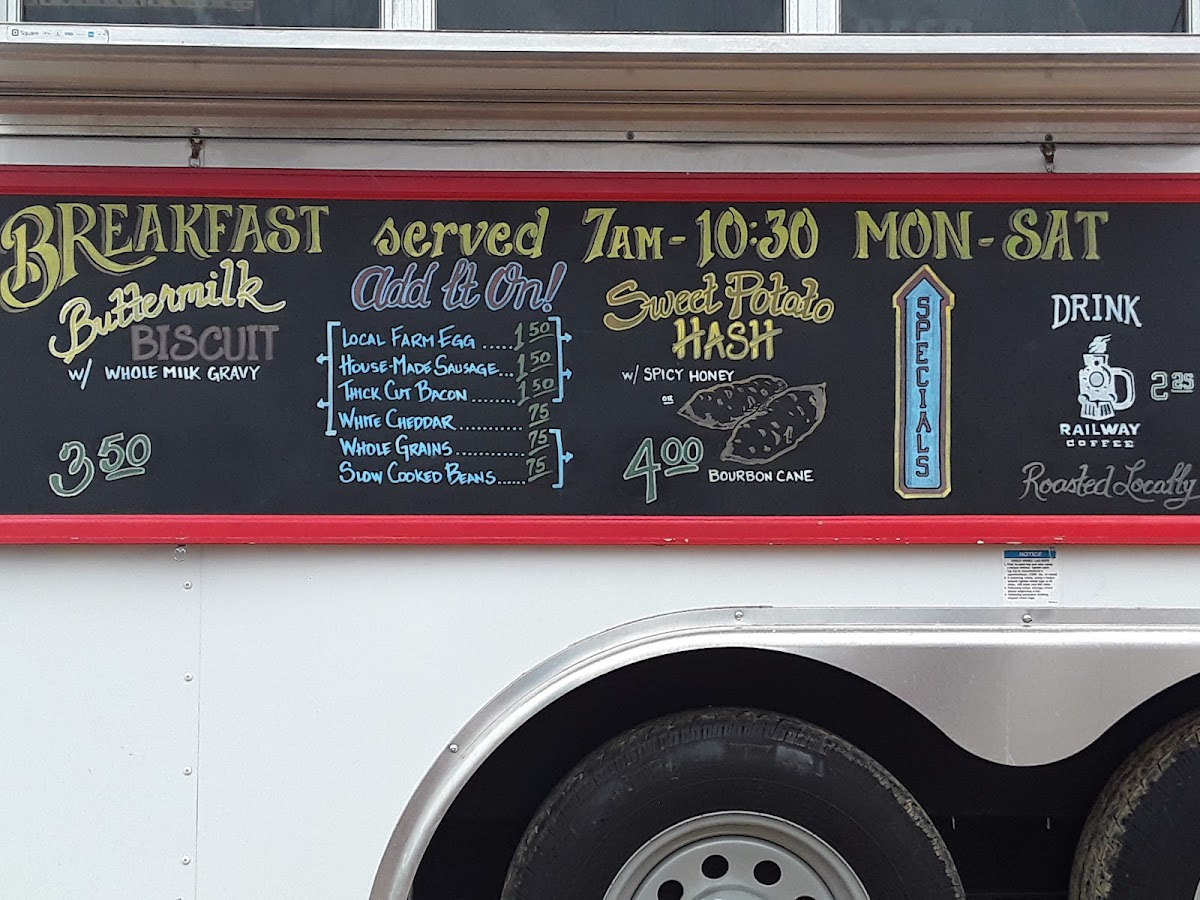 Square
BREAKFAST served 7AM - 10:30 MON - SAT
Buttermilk
BISCUIT
w/ WHOLE MILK GRAVY
3.50
Add It On!
LOCAL FARM EGG ..... 1.50
HOUSE-MADE SAUSAGE... 1.50
THICK CUT BACON ........ 1.50
WHITE CHEDDAR........... .75
WHOLE GRAINS............ .75
SLOW COOKED BEANS..... .75
Sweet Potato
HASH
w/ SPICY HONEY
OR
BOURBON CANE
4.00
SPECIALS
DRINK
2.25
RAILWAY
COFFEE
Roasted Locally
NOTICE